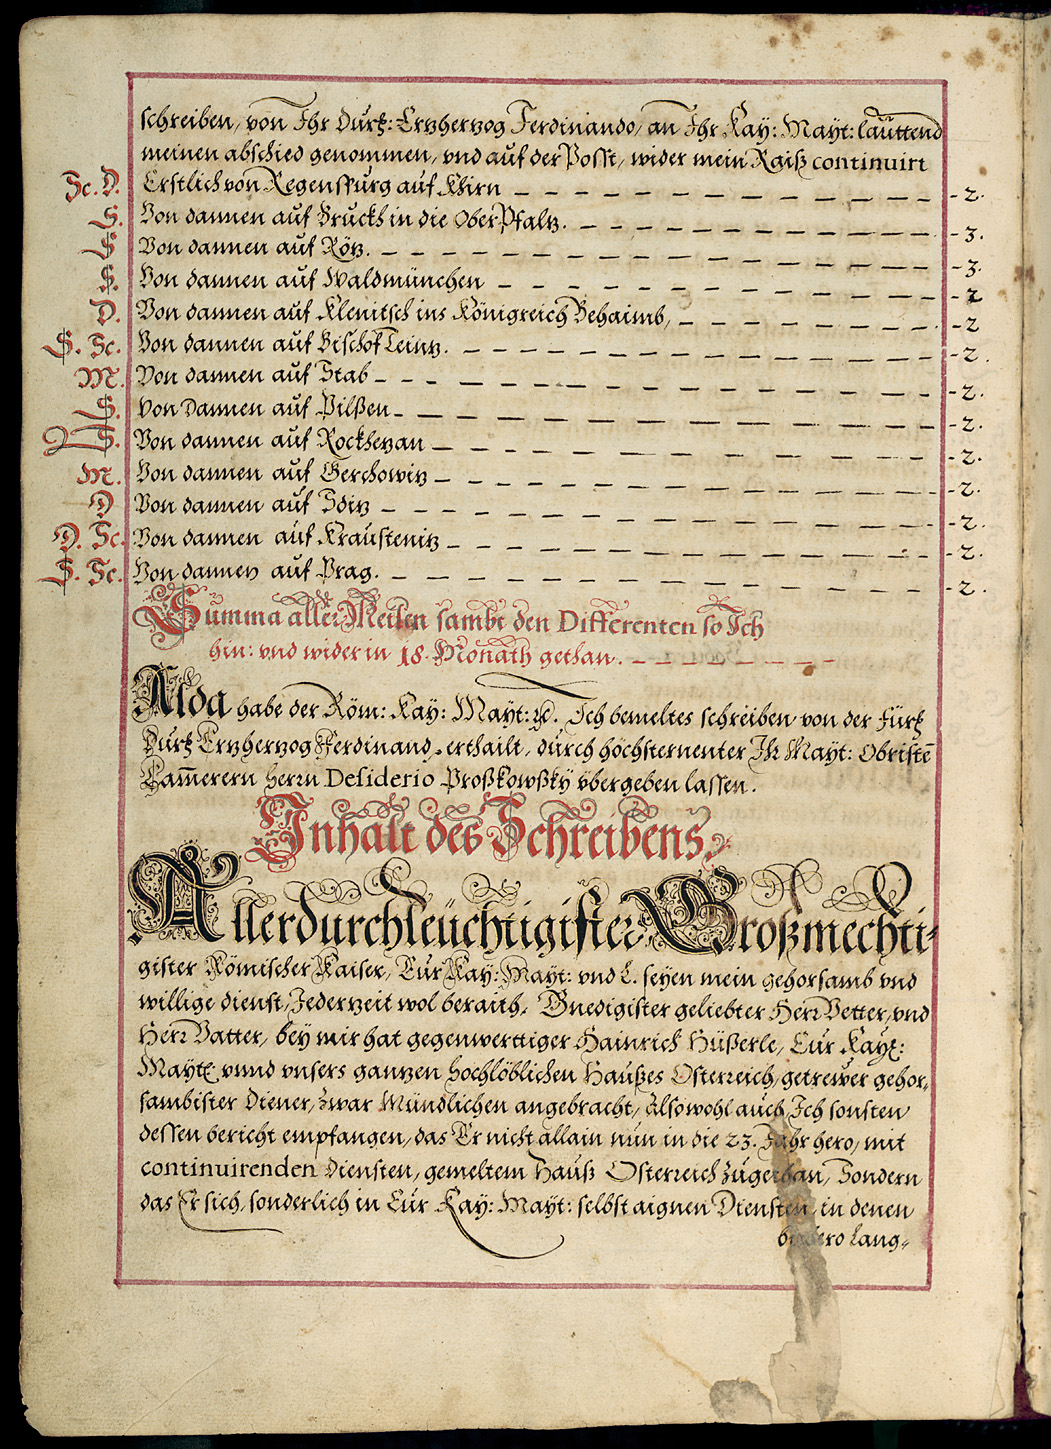 schreiben, von Ihr Durch: Ertzhertzog Ferdinando, an Ihr Kay: Mayt: lauttend
meinen abschied genommen, vnd auf der Posst, wider mein Raiß continuirt
Sc. D. Erstlich von Regenspurg auf Khirn – 2.
S. Von dannen auf Bruckh in die Ober Pfaltz. – 3.
S Von dannen auf Rötz. – 3.
S. Von dannen auf Waldmünchen – 2
D. Von dannen auf Klenitsch ins Königreich Behaimb, – 2
S. Sc. Von dannen auf Bischof Teintz. – 2.
M. Von dannen auf Stab – 2.
S. Von dannen auf Pilßen – 2.
S. Von dannen auf Rockhezan – 2.
M. Von dannen auf Gerchowitz – 2.
D Von dannen auf Sditz – 2.
D. Sc. Von dannen auf Kraustenitz – 2.
S. Sc. Von dannen auf Prag. – 2.
Summa aller Meilen sambt den Differenten so Ich
hin: vnd wider in 18. Monath gethan.
Alda habe der Röm: Kay: Mayt: Ich bemeltes schreiben von der Fürst
Durch Ertzhertzog Ferdinand, erthailt, durch höchsternenter Ihr Mayt: Obristē
Cam̄erern Herrn Desiderio Proßkowßky vbergeben lassen.
Inhalt des Schreibens.
Allerdurchleüchtigister Großmechti-
gister Römischer Kaiser, Eur Kay: Mayt: vnd L. seyen mein gehorsamb vnd
willige dienst, Jederzeit wol beraith, Gnedigister geliebter Herr Vetter, vnd
Herr Vatter, bey mir hat gegenwerttiger Hainrich Hüßerle, Eur Kay:
Mayt: vnnd vnsers gantzen Hochlöblichen Haußes Osterreich, getrewer gehor-
sambister Diener, zwar Mündlichen angebracht, Alsowohl auch Ich sonsten
dessen bericht empfangen, das Er nicht allain nun in die 23. Jahr hero, mit
continuirenden Diensten, gemeltem Hauß Osterreich zugethan, Sondern
das Er sich, sonderlich in Eur Kay: Mayt: selbst aignen Diensten, in denen
bißhero lang-